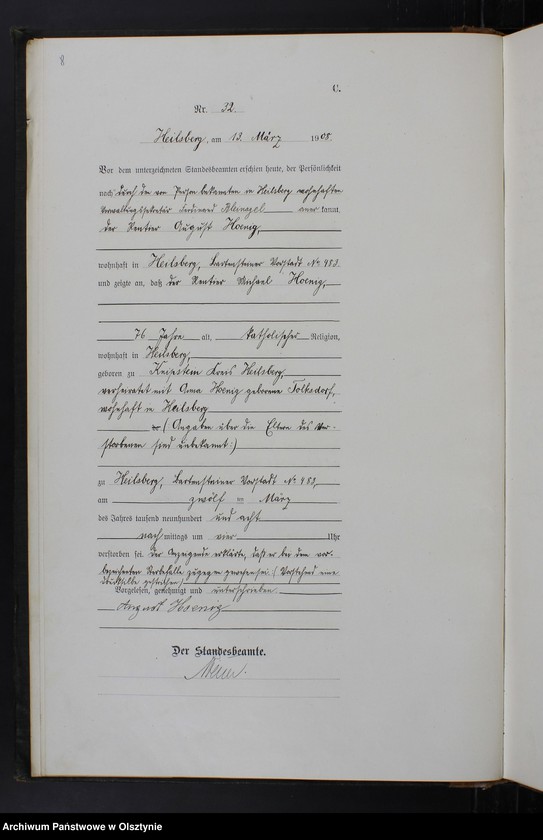 8
C.
Nr. 32.
Heilsberg, am 13. März 1908.
Vor dem unterzeichneten Standesbeamten erschien heute, der Persönlichkeit
nach durch den von Person bekannten in Heilsberg wohnhaften
Ferdinand anerkannt,
der Rentier August Hoenig,
wohnhaft in Heilsberg, Bartensteiner Vorstadt No 483
und zeigte an, daß der Rentier Michael Hoenig,
76 Jahre alt, katholischer Religion,
wohnhaft in Heilsberg,
geboren zu Kreis Heilsberg,
verheiratet mit Anna Hoenig geborene Tolksdorf,
wohnhaft in Heilsberg
(Angaben über die Eltern des Ver-
storbenen sind unbekannt.)
zu Heilsberg, Bartensteiner Vorstadt No 483,
am zwölf ten März
des Jahres tausend neunhundert und acht
nach mittags um vier Uhr
verstorben sei. Der Anzeigende erklärte, daß er bei dem vor-
bezeichneten Sterbefalle zugegen gewesen sei. (Vorstehend eine
Druckstelle gestrichen)
Vorgelesen, genehmigt und unterschrieben
August Hoenig
Der Standesbeamte.
Archiwum Państwowe w Olsztynie